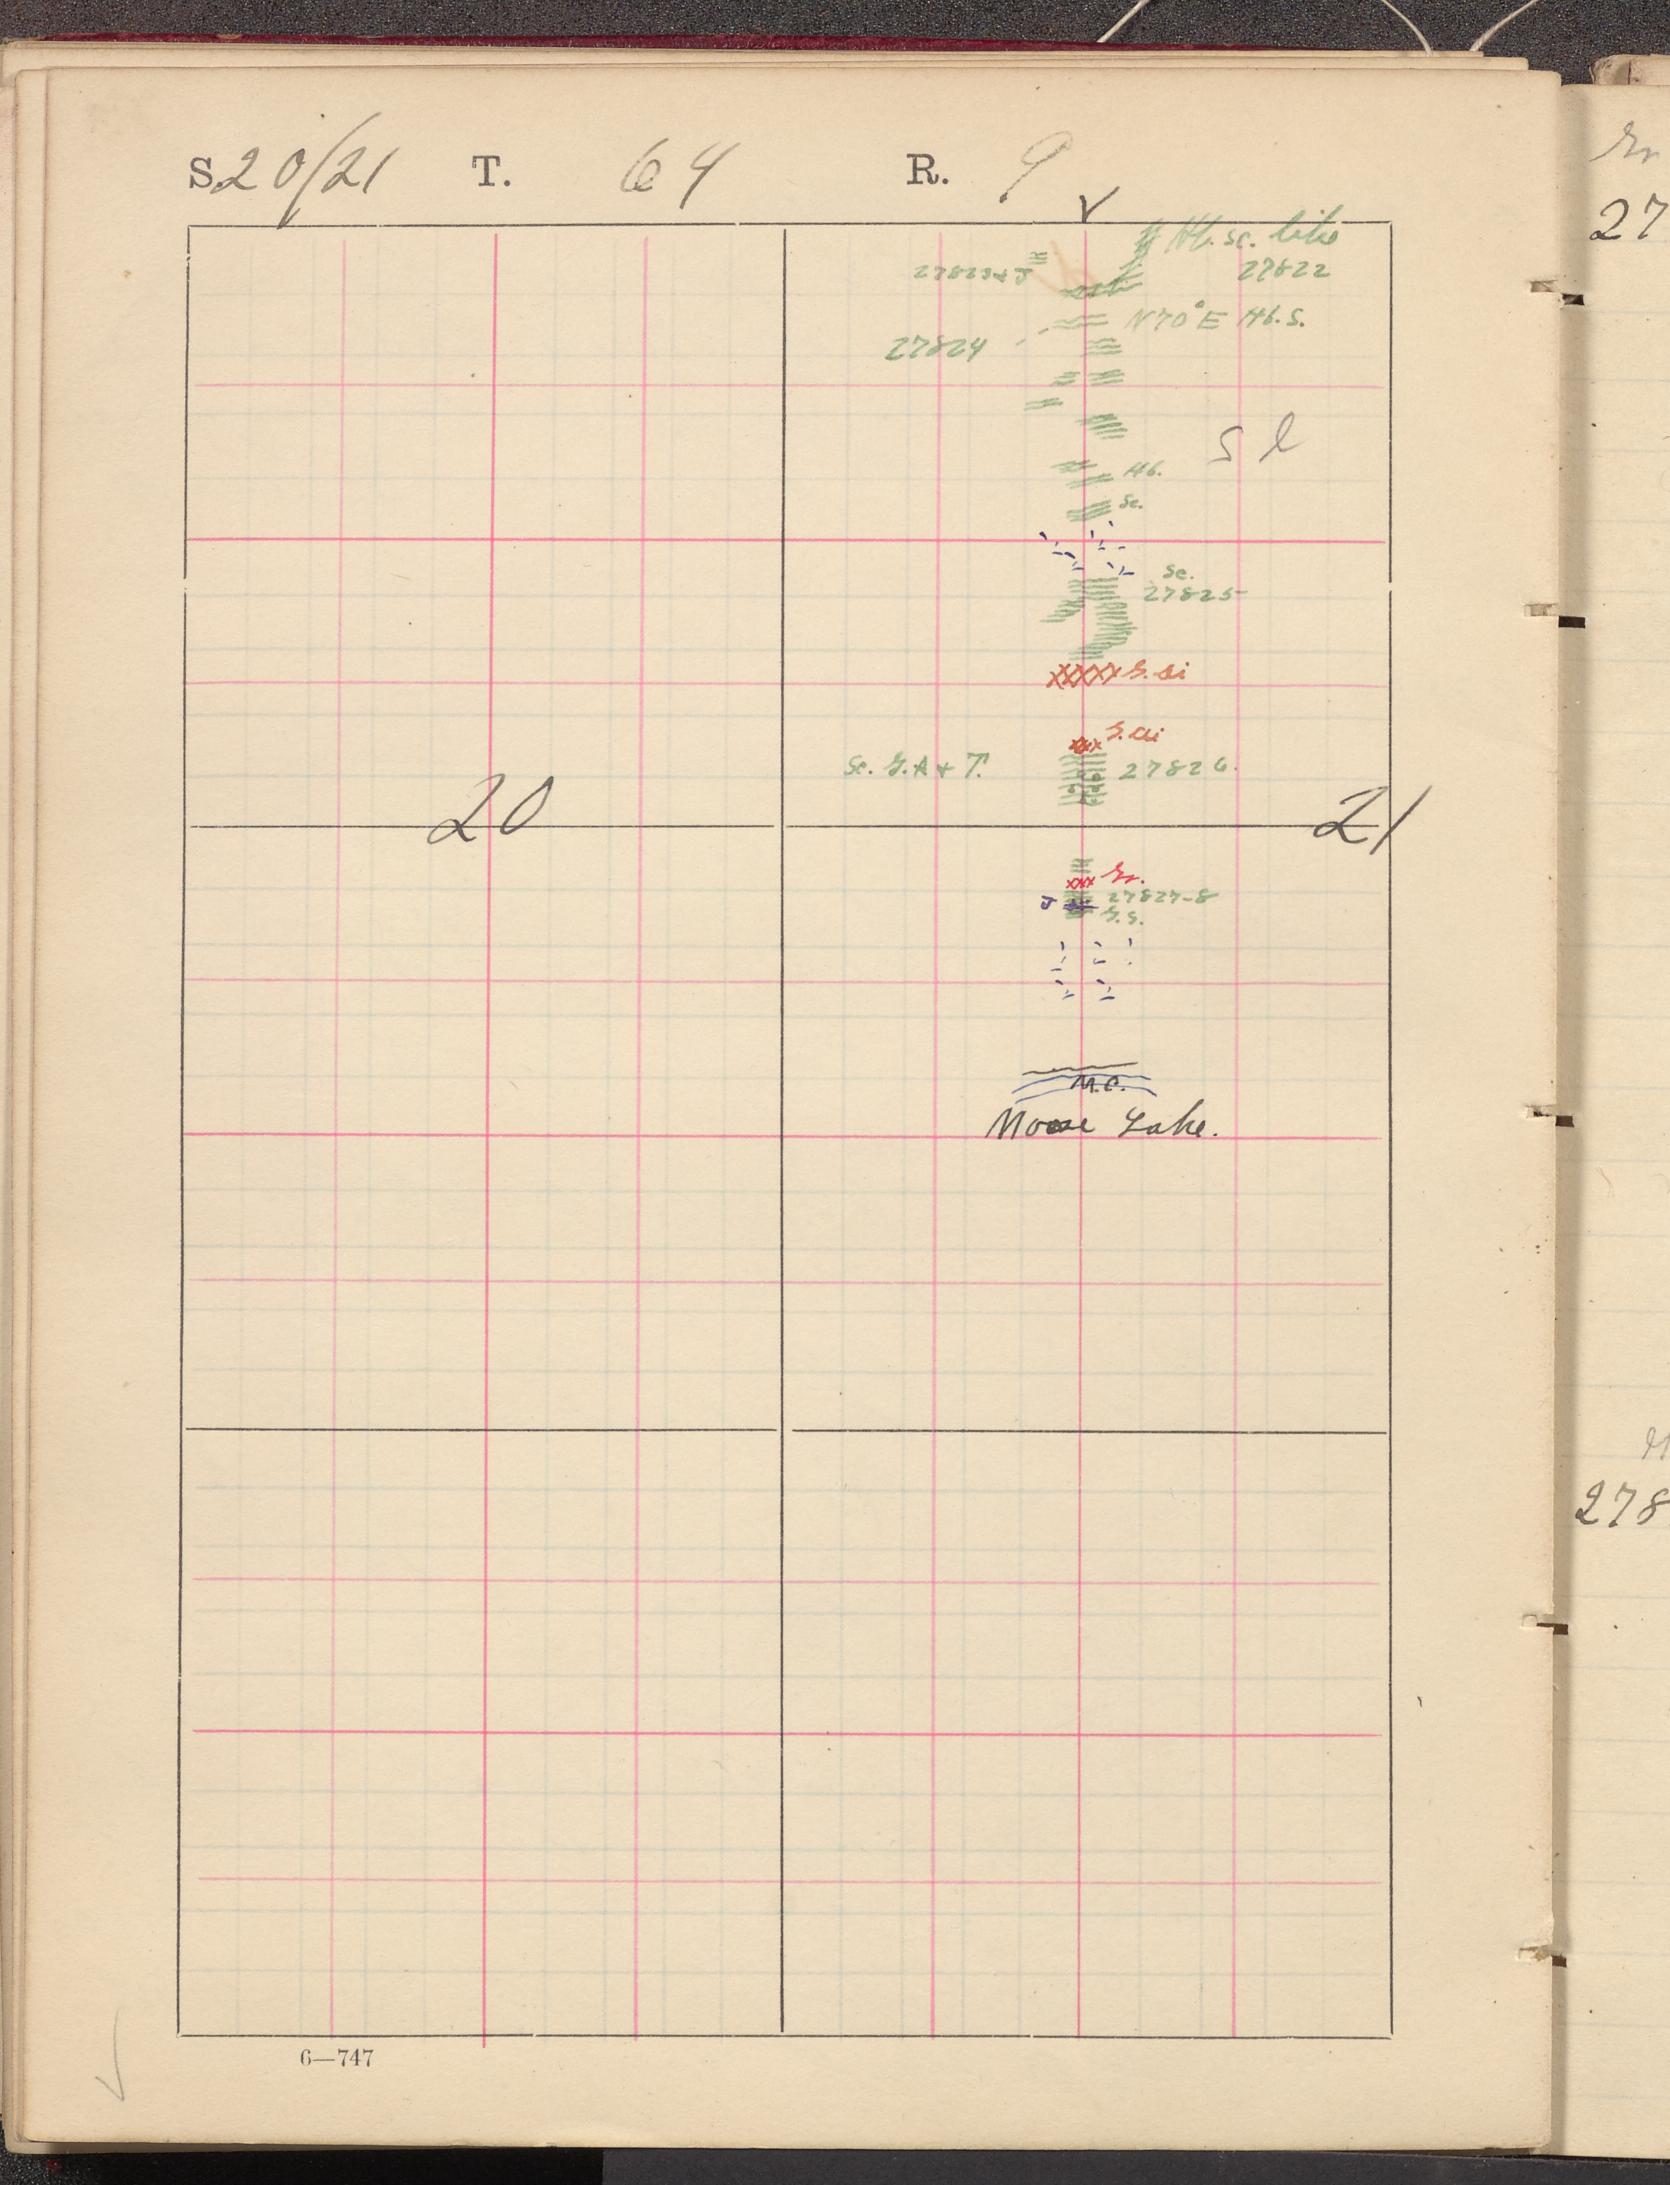 S. 20/21 T. 64 R. 9
Hb. sc. like
27822
27823 + J
N 70° E Hb. S.
27824
S l
Hb.
Sc.
Sc.
27825
Sc. G. A + T.
27826.
20
21
Gr.
J
27827-8
G. S.
M.C.
Moose Lake.
6—747
27
278